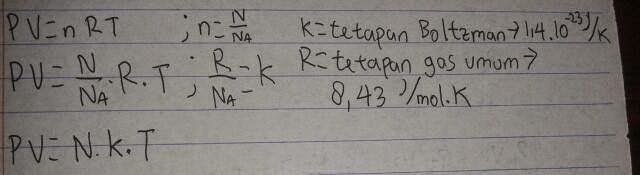 PV=nRT ; n=N/NA K=tetapan Boltzman→1,4.10⁻²³J/K
PV=N/NA.R.T ; R/NA=k R=tetapan gas umum→
8,43 J/mol.K
PV=N.k.T